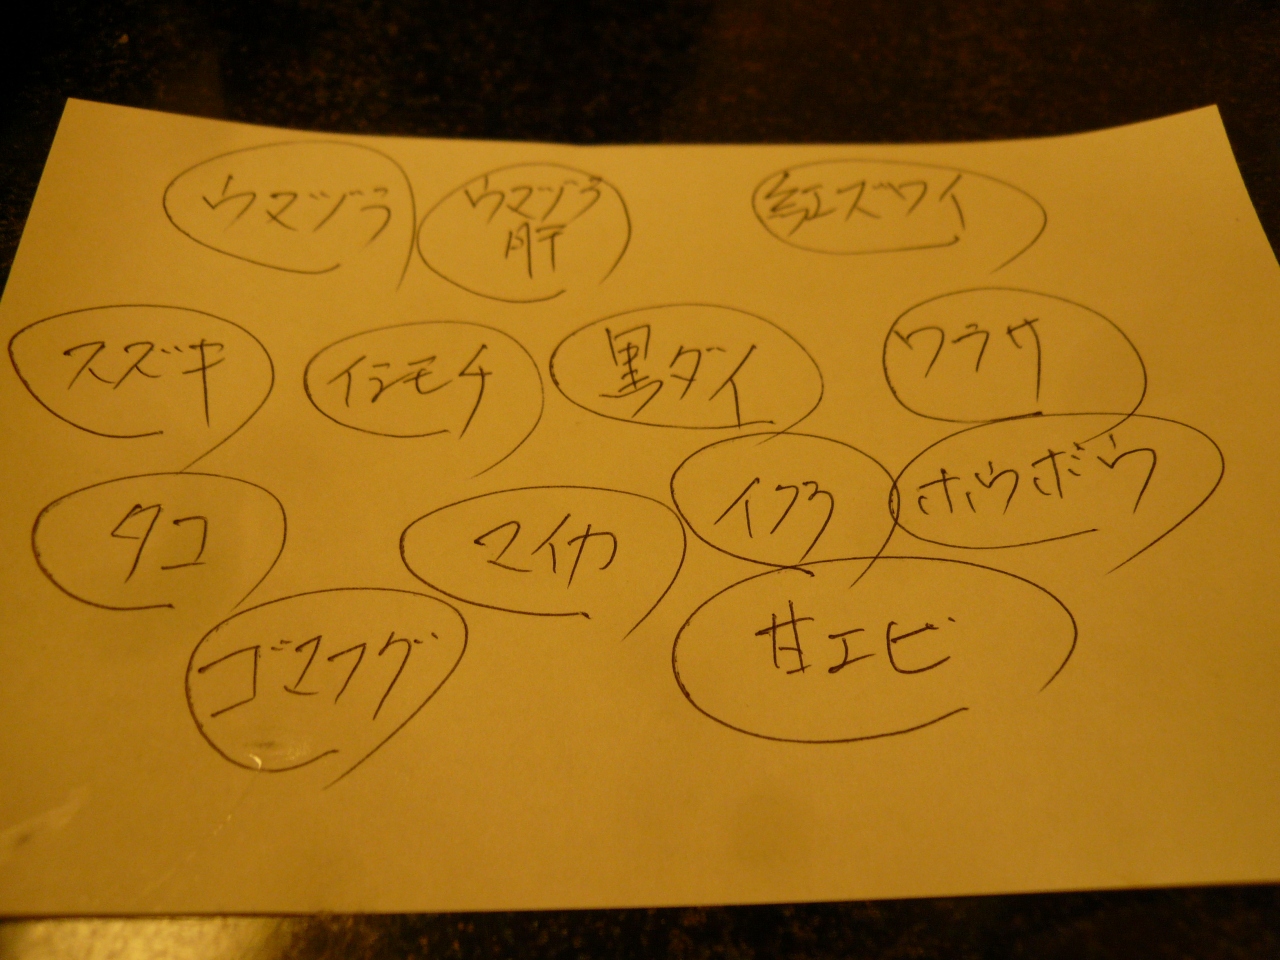 ウマヅラ
ウマヅラ
肝
紅ズワイ
スズキ
イシモチ
黒ダイ
ワラサ
タコ
マイカ
イクラ
ホウボウ
ゴマフグ
甘エビ